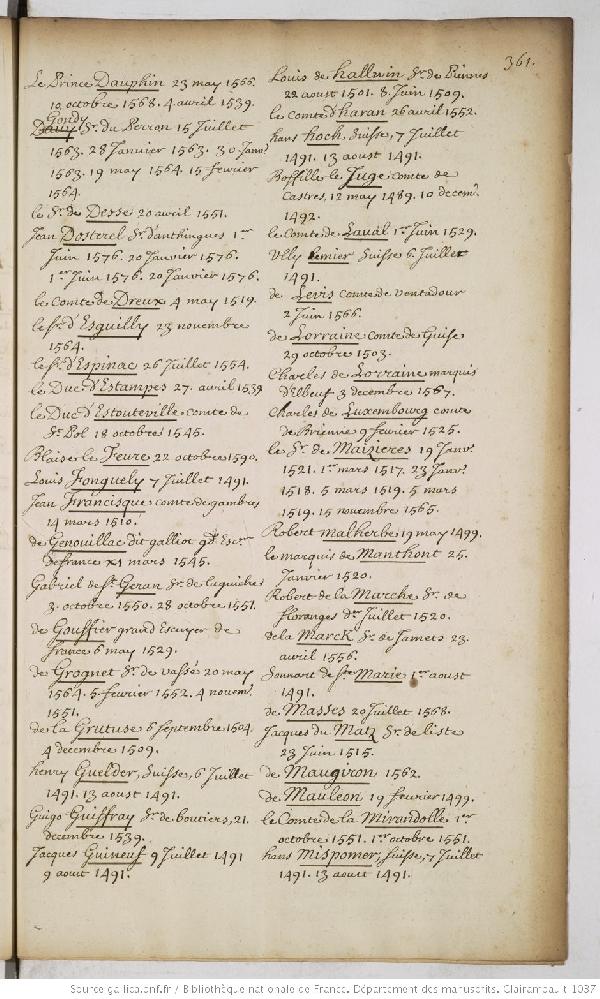 361.
Le Prince Dauphin 23 may 1566.
10 octobre 1568. 4 avril 1539.
Gondy
Sr. du Perron 15 Juillet
1563. 28 Janvier 1563. 30 Janvr
1563. 19 may 1564. 15 fevrier
1564.
le Sr. de Desse 20 avril 1551.
Jean Dosterel Sr. d'anthingues 1er
Juin 1576. 20 Janvier 1576.
1er Juin 1576. 20 Janvier 1576.
le Comte de Dreux 4 may 1519.
le Sr. d'Esguilly 23 novembre
1564.
le Sr. d'Espinac 26 Juillet 1554.
le Duc d'Estampes 27. avril 1539
le Duc d'Estouteville comte de
St. Pol 18 octobre 1545.
Blaise le Feure 22 octobre 1590.
Louis Fonguely 7 Juillet 1491.
Jean Francisque comte de gambres
14 mars 1510.
de Genouillac dit galliot gd. Escr.
de france x1 mars 1545.
Gabriel de St. Geran Sr. de
3. octobre 1550. 28 octobre 1551.
de Gouffier grand Escuyer de
france 6 may 1529.
de Grognet Sr. de vassé 20 may
1564. 5 fevrier 1552. 4 novem.
1551.
de la Grutuse 6 septembre 1504
4 decembre 1509.
henry Guelder, Suisse, 6 Juillet
1491. 13 aoust 1491.
Guigo Guiffray Sr. de boutiers, 21.
decembre 1539.
Jacques Guineuf 9 Juillet 1491
9 aoust 1491.
Louis de hallwin Sr. de Piennes
22 aoust 1501. 8. Juin 1509.
le comte d'haran 26 avril 1552.
hans hoch, Suisse, 7 Juillet
1491. 13 aoust 1491.
Boffille le Juge comte de
Castres, 12 may 1489. 10 decem.
1492.
le Comte de Laval 1er Juin 1529.
Vlly Lemier Suisse 6. Juillet
1491.
de Levis Comte de Ventadour
2 Juin 1566.
de Lorraine comte de Guise
29 octobre 1503.
Charles de Lorraine marquis
d'Elbeuf 3 decembre 1567.
Charles de Luxembourg comte
de Brienne 9 fevrier 1525.
le Sr. de Maizieres 19 Janvr.
1521. 1er mars 1517. 23 Janvr.
1518. 5 mars 1519. 5 mars
1519. 15 novembre 1565.
Robert malherbe 19 may 1499.
le marquis de Manthont 25.
Janvier 1520.
Robert de la Marche Sr. de
floranges der Juillet 1520.
de la Marck Sr. de Jamets 23.
avril 1556.
Sonnart de Ste Marie 1er aoust
1491.
de Masses 20 Juillet 1568.
Jacques du Matz Sr. de liste
23 Juin 1515.
de Maugiron 1562.
de Mauleon 19 fevrier 1499.
le Comte de la Mirandolle 1er
octobre 1551. 1er octobre 1551.
hans Mispomer, Suisse, 7 Juillet
1491. 13 aoust 1491.
Source gallica.bnf.fr / Bibliothèque nationale de France. Département des manuscrits. Clairambault 1037